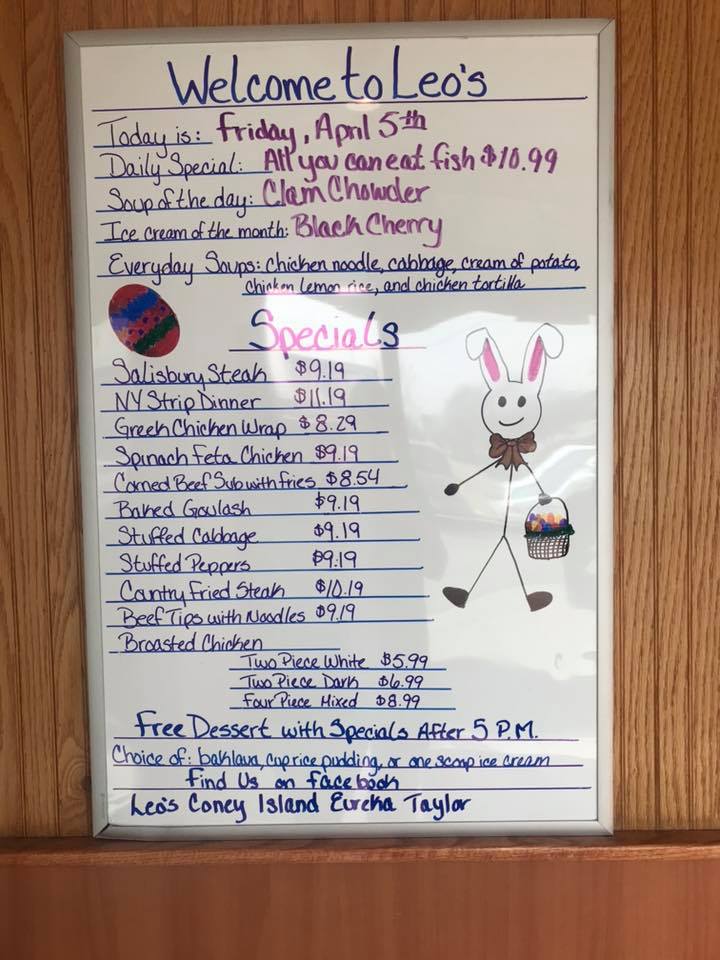 Welcome to Leo's
Today is: Friday, April 5th
Daily Special: All you can eat fish $10.99
Soup of the day: Clam Chowder
Ice cream of the month: Black Cherry
Everyday Soups: chicken noodle, cabbage, cream of potato,
chicken lemon rice, and chicken tortilla
Specials
Salisbury Steak $9.19
NY Strip Dinner $11.19
Greek Chicken Wrap $8.29
Spinach Feta Chicken $9.19
Corned Beef Sub with fries $8.54
Baked Goulash $9.19
Stuffed Cabbage $9.19
Stuffed Peppers $9.19
Cantry Fried Steak $10.19
Beef Tips with Noodles $9.19
Broasted Chicken
Two Piece White $5.99
Two Piece Dark $6.99
Four Piece Mixed $8.99
Free Dessert with Specials After 5 P.M.
Choice of: baklava, cup rice pudding, or one scoop ice cream
Find Us on facebook
Leo's Coney Island Eureka Taylor